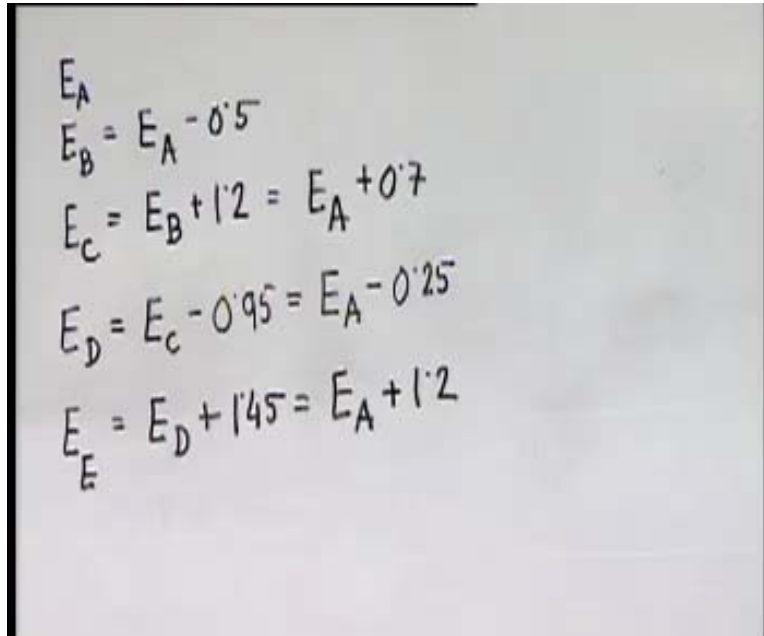 E_A
E_B = E_A - 0.5
E_C = E_B + 1.2 = E_A + 0.7
E_D = E_C - 0.95 = E_A - 0.25
E_E = E_D + 1.45 = E_A + 1.2